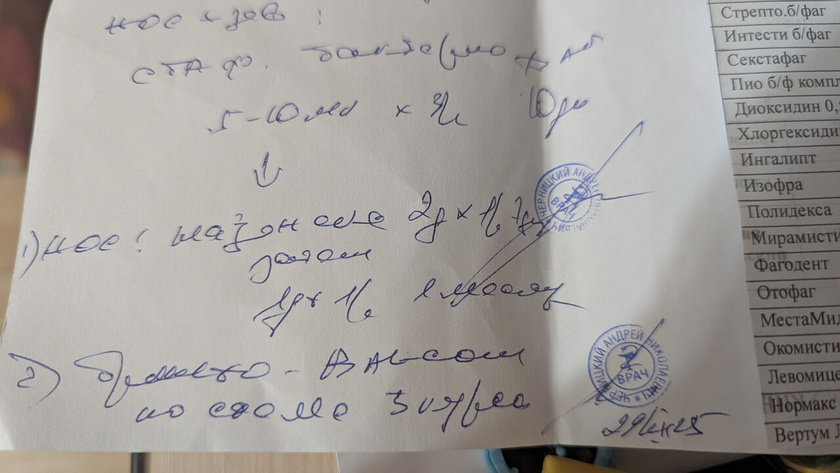 нос + зев:
стаф. бактериофаг
5-10 мл х
↓
1) нос: назонекс 2д х
затем
1д х 1 месяц
2) Бронхо-Ваксом
по схеме 3 курса
ЧЕРНИЦКИЙ АНДРЕЙ
ВРАЧ
ЧЕРНИЦКИЙ АНДРЕЙ НИКОЛАЕВИЧ
ВРАЧ
Стрепто.б/фаг
Интести б/фаг
Секстафаг
Пио б/ф компл
Диоксидин 0,
Хлоргексиди
Ингалипт
Изофра
Полидекса
Мирамисти
Фагодент
Отофаг
МестаМид
Окомисти
Левомице
Нормакс
Вертум